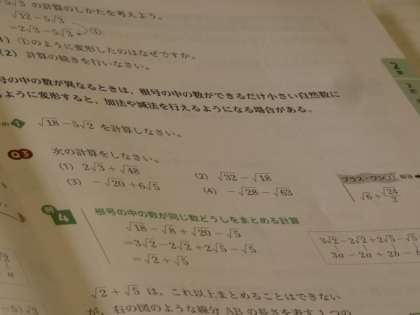 5√3 の計算のしかたを考えよう。
√12 − 5√3
= 2√3 − 5√3 ①
①のように変形したのはなぜですか。
(2) 計算の続きを行いなさい。
号の中の数が異なるときは，根号の中の数ができるだけ小さい自然数に
ように変形すると，加法や減法を行えるようになる場合がある。
√18 − 5√2 を計算しなさい。
Q3 次の計算をしなさい。
(1) 2√3 + √48
(2) √32 − √18
(3) −√20 + 6√5
(4) −√28 − √63
プラス・ワン①
√6 + √24/2
例4 根号の中の数が同じ数どうしをまとめる計算
√18 − √8 + √20 − √5
= 3√2 − 2√2 + 2√5 − √5
= √2 + √5
3√2 − 2√2 + 2√5 − √5
3a − 2a + 2b −
√2 + √5 は，これ以上まとめることはできない
が，右の図のような線分 AB の長さを表す1つの